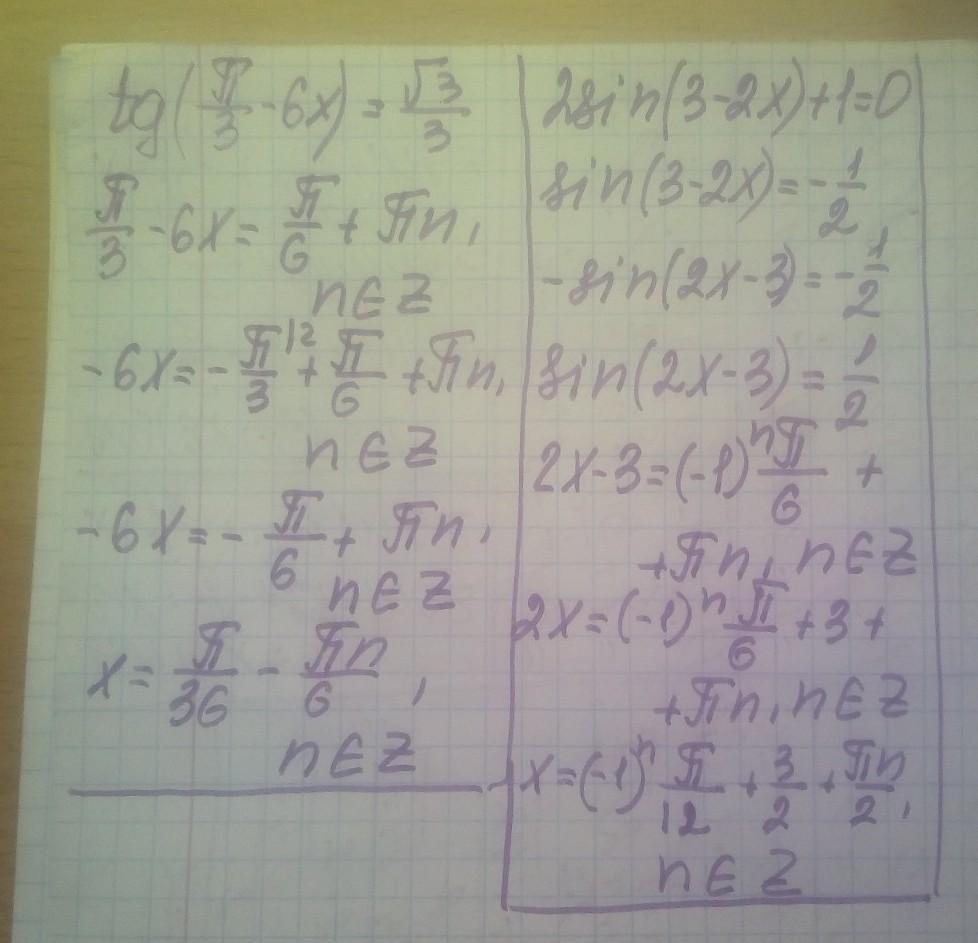 tg(π/3 - 6x) = √3/3
π/3 - 6x = π/6 + πn,
n∈Z
-6x = -π/3 \2 + π/6 + πn,
n∈Z
-6x = -π/6 + πn,
n∈Z
x = π/36 - πn/6,
n∈Z
2sin(3-2x)+1=0
sin(3-2x) = -1/2
-sin(2x-3) = -1/2
sin(2x-3) = 1/2
2x-3 = (-1)ⁿ π/6 +
+πn, n∈Z
2x = (-1)ⁿ π/6 + 3 +
+πn, n∈Z
x = (-1)ⁿ π/12 + 3/2 + πn/2,
n∈Z